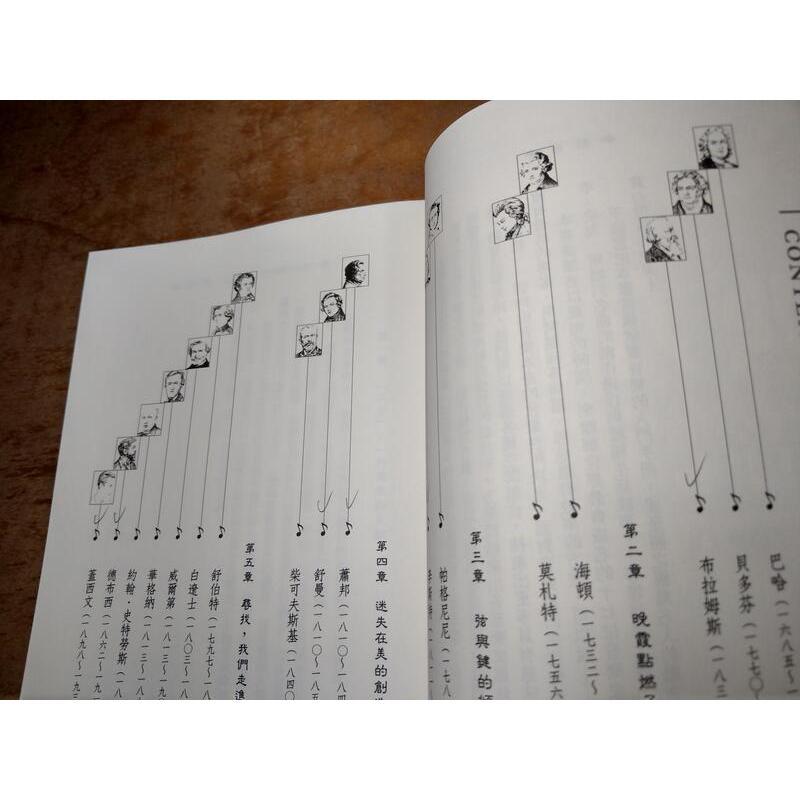 CONTE
巴哈(一六八五~
貝多芬(一七七〇
布拉姆斯(一八三
第二章 晚霞點燃
海頓(一七三二~
莫札特(一七五六
第三章 弦與鍵的
帕格尼尼(一七八
第四章 迷失在美的創造
蕭邦(一八一〇~一八四
舒曼(一八一〇~一八五
柴可夫斯基(一八四〇
第五章 尋找,我們走進
舒伯特(一七九七~一八
白遼士(一八〇三~一八
威爾第(一八一三~一
華格納(一八一三~一八
約翰·史特勞斯(一八
德布西(一八六二~一九
蓋西文(一八九八~一九三